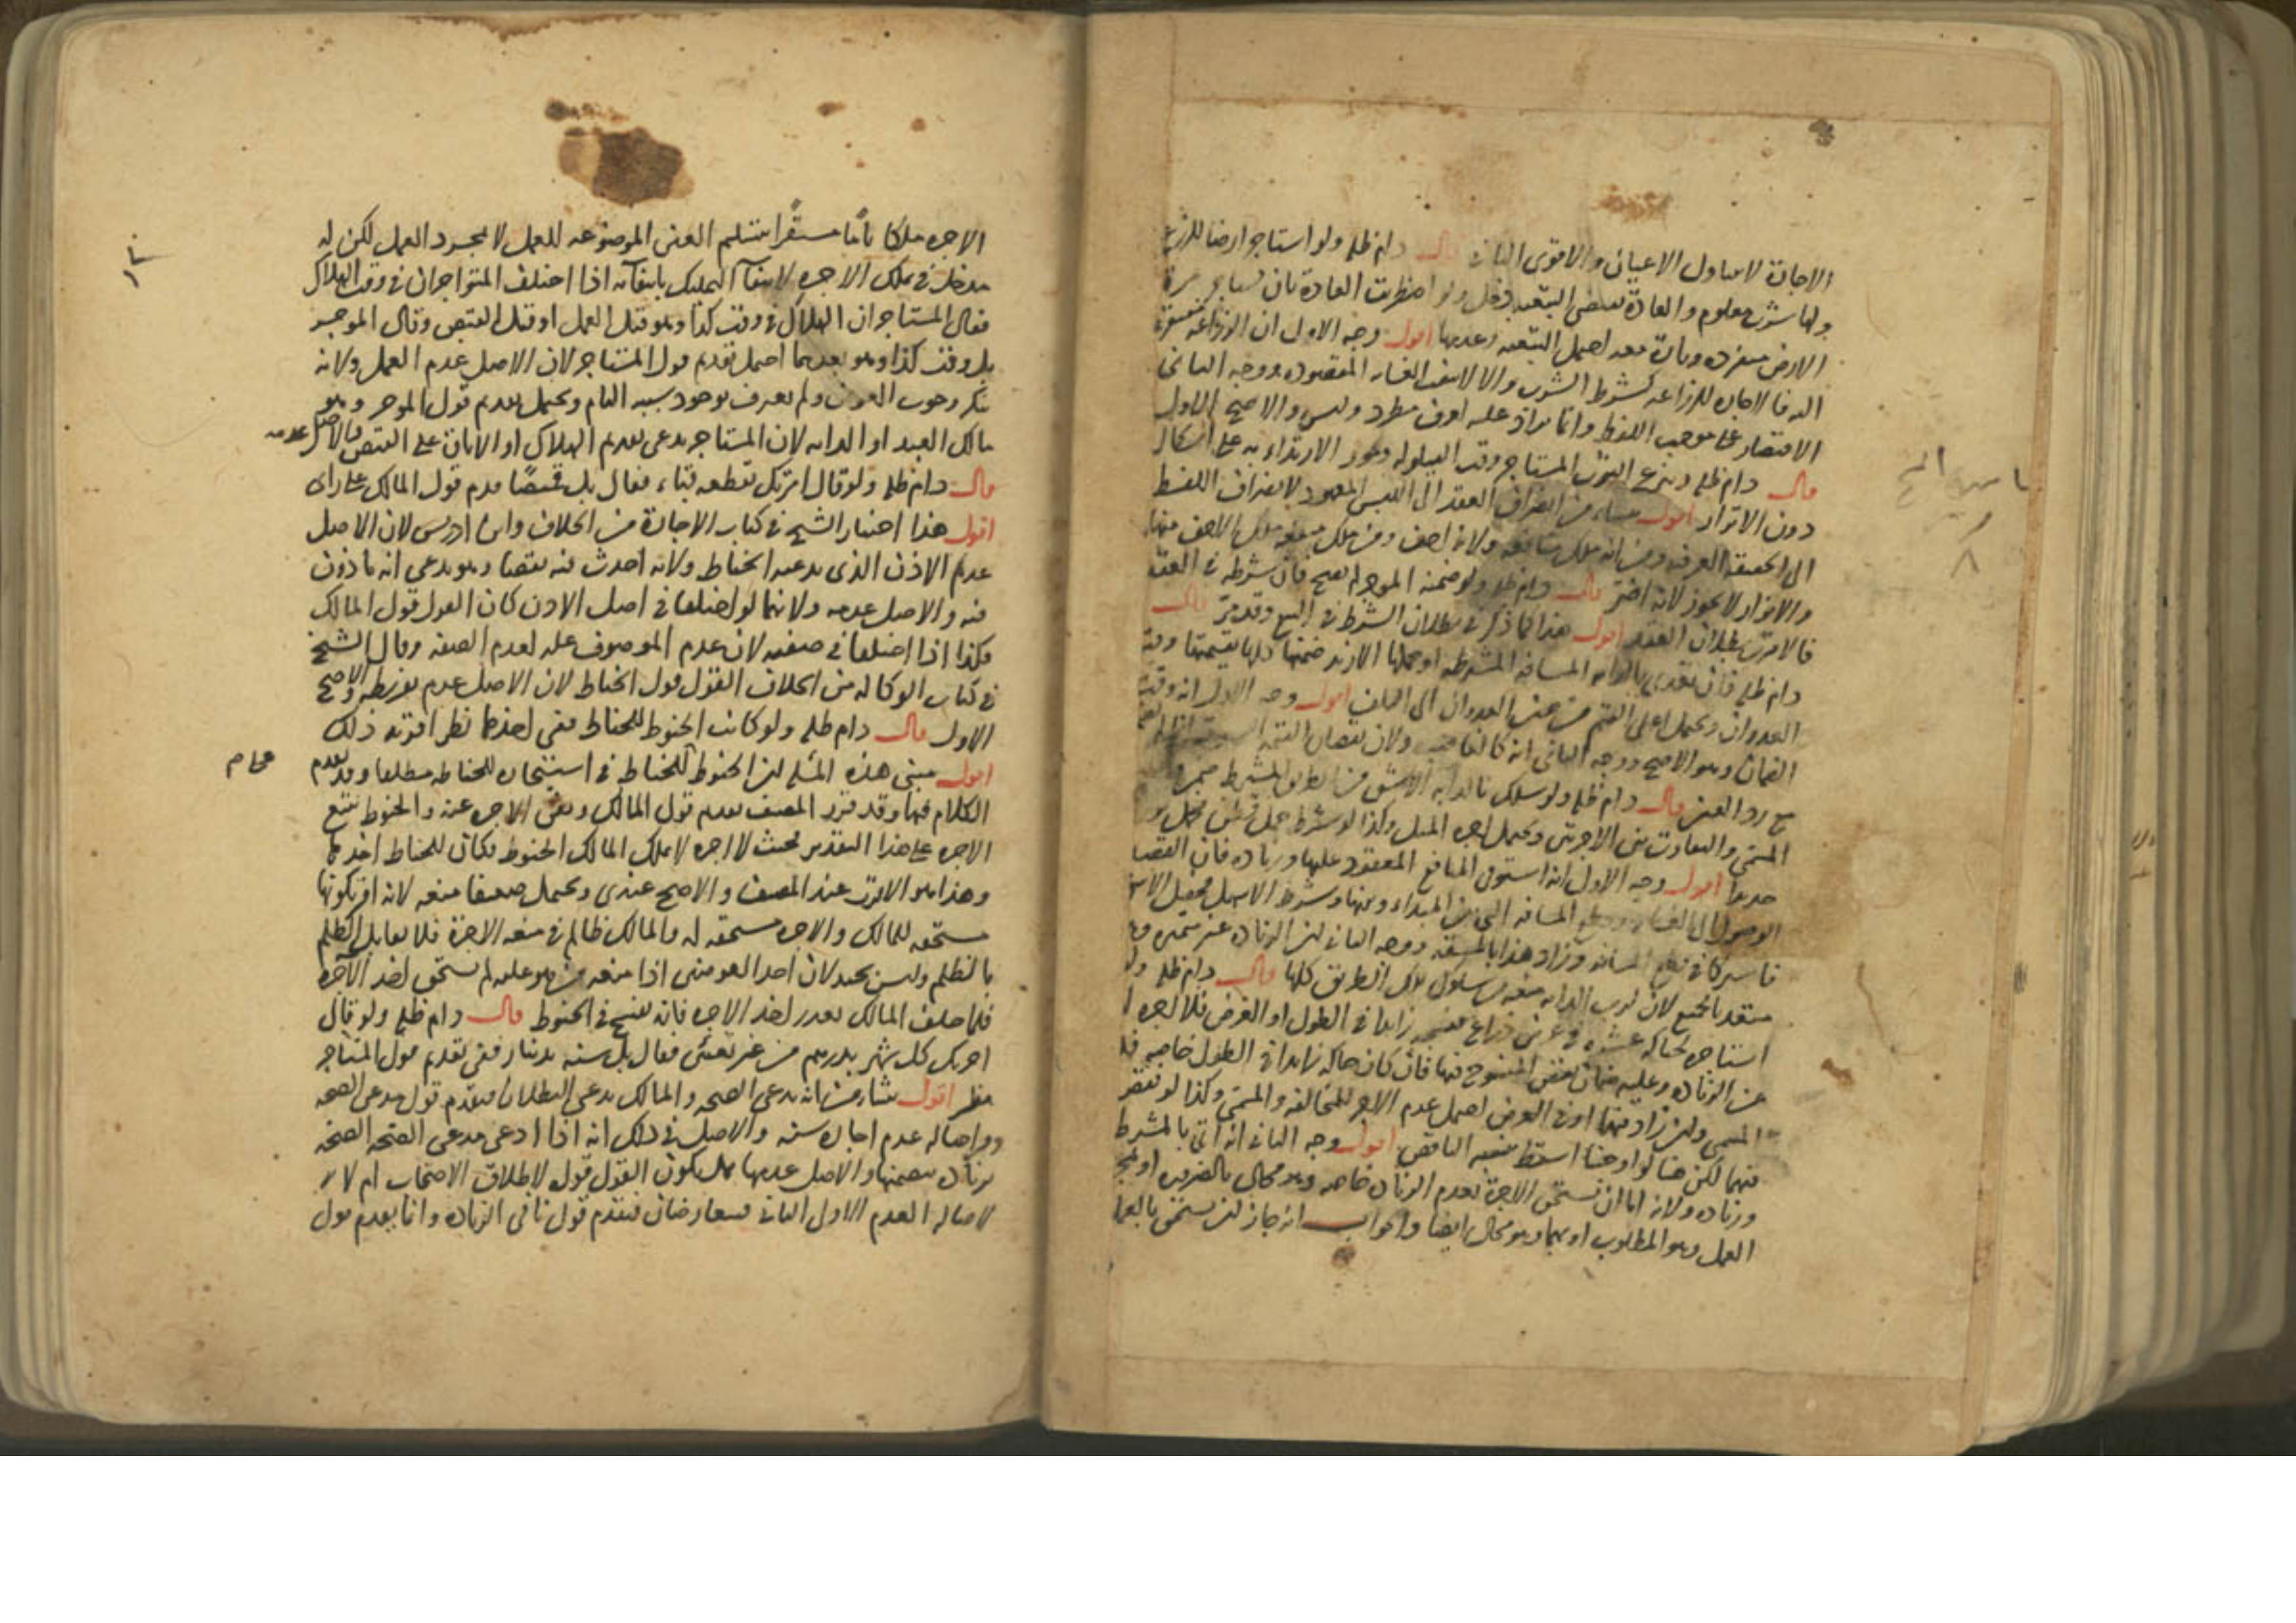 الاجارة لا تتناول الاعيان والاقوى الثاني قال دام ظله ولو استاجر ارضا للزرع
ولها شرب معلوم والعادة تقتضي التبعية دخل ولو اضطربت العادة بان تستاجر مرة
الارض منفردة وتارة معه احتمل التبعية وعدمها اقول وجه الاول ان الزراعة مفتقرة
اليه فالاجارة للزراعة كشرط الشرب والا لانتفت الغاية المقصودة ووجه الثاني
الاقتصار على موجب اللفظ وانما يزاد عليه لعرف مطرد وليس والاصح الاول
قال دام ظله وينزع الثوب المستاجر وقت القيلولة ويجوز الارتداء به على اشكال
دون الاتزار اقول ينشاء من انصراف العقد الى اللبس المعهود لانصراف اللفظ
الى الحقيقة العرفية ومن انه ملك منافعه ولانه اخف ومن ملك منفعة ملك الاخف منها
والاتزار لا يجوز لانه اضر قال دام ظله ولو ضمنه الموجر لم يصح فان شرطه في العقد
فالاقرب بطلان العقد اقول هذا كما ذكر في بطلان الشرط في البيع وقد مر قال
دام ظله فان تعدى بالدابة المسافة المشترطة او حملها الازيد ضمنها كلها بقيمتها وقت
العدوان ويحتمل اعلى القيم من حين العدوان الى التلف اقول وجه الاول انه وقت
الضمان وهو الاصح ووجه الثاني انه كالغاصب ولان نقصان القيمة
مع رد العين قال دام ظله ولو سلك بالدابة الاشق من الطريق المشترط ضمن و
المسمى والتفاوت بين الاجرتين ويحتمل اجرة المثل وكذا لو شرط حمل قطن فحمل
حديدا اقول وجه الاول انه استوفى المنافع المعقود عليها وزيادة فان القصد
الوصول الى الغاية وقطع المسافة التي بين المبداء وبينها وشرط الاسهل
في قطع المسافة وزاد هذا بالمشقة ووجه الثاني ان الزيادة غير متميزة
لان لرب الدابة منعه من سلوك تلك الطريق كلها قال دام ظله ولو
استاجر لحياكة عشرة في عرض ذراع فنسجه زايدا في الطول او العرض فلا اجرة
عن الزيادة وعليه ضمان نقص المنسوج فيها فان كان حاكه زايدا في الطول خاصة فله
المسمى وان زاد فيهما او في العرض احتمل عدم الاجر للمخالفة والمسمى وكذا لو نقص
فيهما لكن هنا لو اوجبنا اسقط بنسبة الناقص اقول وجه الثاني انه اتى بالمشترط
وزيادة ولانه اما ان يستحق الاجرة بعدم الزيادة خاصة وهو محال بالضرورة او
العمل وهو المطلوب او بهما وهو محال ايضا والجواب انه جاز ان يستحق بالعمل
الاجرة ملكا تاما مستقرا بتسليم العين الموضوعة للعمل لا بمجرد العمل لكن له
مدخل في ملك الاجرة لانتفاء التمليك بانتفائه اذا اختلف المتواجران في وقت الهلاك
فقال المستاجر ان الهلاك في وقت كذا وهو قبل العمل او قبل القبض وقال الموجر
بل وقت كذا وهو بعدهما احتمل تقديم قول المستاجر لان الاصل عدم العمل ولانه
ينكر وجوب العوض ولم يعرف بوجود سببه التام ويحتمل تقديم قول الموجر وهو
مالك العبد او الدابة لان المستاجر يدعي تقديم الهلاك او الاباق على القبض والاصل عدمه
قال دام ظله ولو قال امرتك بقطعه قباء فقال بل قميصا قدم قول المالك على راى
اقول هذا اختيار الشيخ في كتاب الاجارة من الخلاف وابن ادريس لان الاصل
عدم الاذن الذي يدعيه الخياط ولانه احدث فيه نقصا وهو يدعي انه ماذون
فيه والاصل عدمه ولانهما لو اختلفا في اصل الاذن كان القول قول المالك
فكذا اذا اختلفا في صفته لان عدم الموصوف علة لعدم الصفة وقال الشيخ
في كتاب الوكالة من الخلاف القول قول الخياط لان الاصل عدم تفريطه والاصح
الاول قال دام ظله ولو كانت الخيوط للخياط ففي اخذها نظر اقربه ذلك
اقول مبنى هذه المسئلة ان الخيوط للخياط في استيجاره للخياطة مطلقا وقد تقدم
الكلام فيها وقد قرر المصنف تقديم قول المالك ونفى الاجرة عنه والخيوط تتبع
الاجرة على هذا التقدير فحيث لا اجرة لا يملك المالك الخيوط فكان للخياط اخذها
وهذا هو الاقرب عند المصنف والاصح عندي ويحتمل ضعيفا منعه لانه اقر بكونها
مستحقة للمالك والاجرة مستحقة له والمالك ظالم في منعه الاجرة فلا يقابل الظلم
بالظلم وليس بجيد لان احد العوضين اذا منعه من هو عليه لم يستحق اخذ الآخر
فلما حلف المالك تعذر اخذ الاجرة فانه يفسخ في الخيوط قال دام ظله ولو قال
اجرتك كل شهر بدرهم من غير تعيين فقال بل سنة بدينار ففي تقديم قول المستاجر
نظر اقول ينشا من انه يدعي الصحة والمالك يدعي البطلان فيقدم قول مدعي الصحة
واصالة عدم اجارة سنة والاصل في ذلك انه اذا ادعى مدعي الصحة الصحة
بزيادة يتضمنها والاصل عدمها هل يكون القول قوله لاطلاق الاصحاب ام لا
لاصالة العدم الاول الثاني فيتعارضان فيقدم قول نافي الزيادة وانما يقدم قول